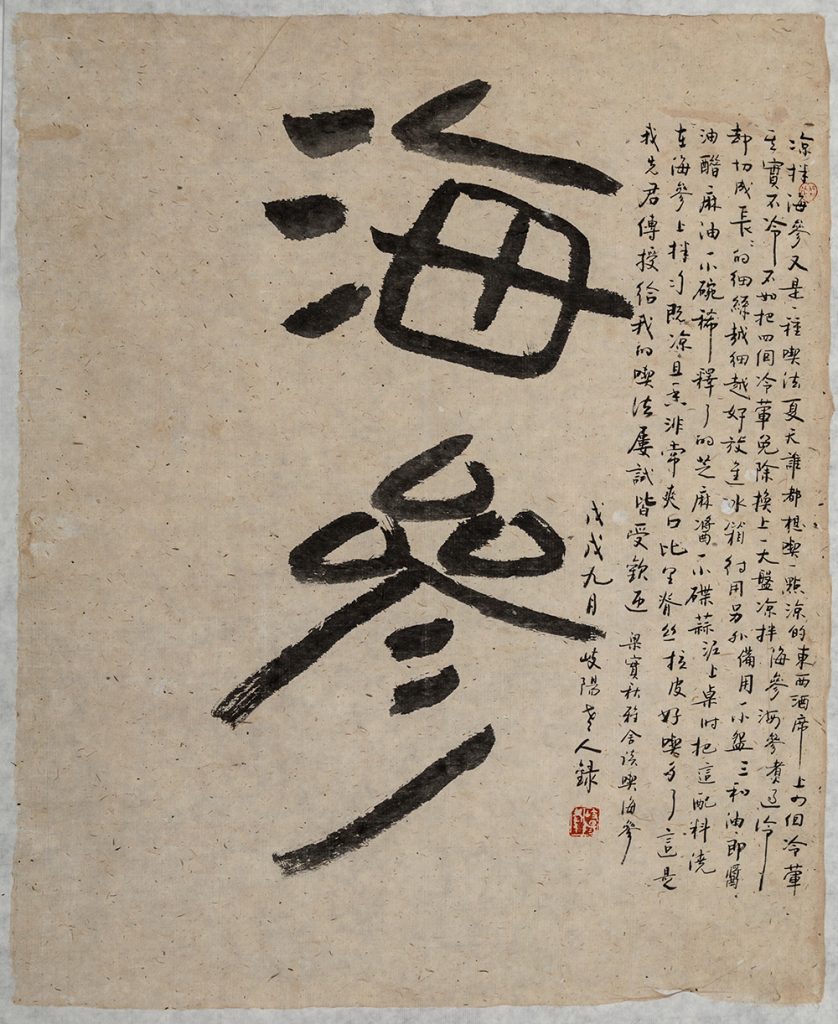 海參
凉拌海參又是一種喫法夏天誰都想喫一點涼的東西酒席上四個冷葷
其實不冷不如把四個冷葷免除換上一大盤凉拌海參海參煮過冷
却切成長〻的細絲越細越好放進冰箱待用另外備用一小盌三和油即醬
油醋麻油一小碗稀釋了的芝麻醬一小碟蒜泥上桌时把這配料澆
在海參上拌勻既凉且香非常爽口比里脊丝拉皮好喫多了這是
我先君傳授給我的喫法屢試皆受歡迎 梁實秋雅舍談喫海參
戊戌九月 岐陽老人錄